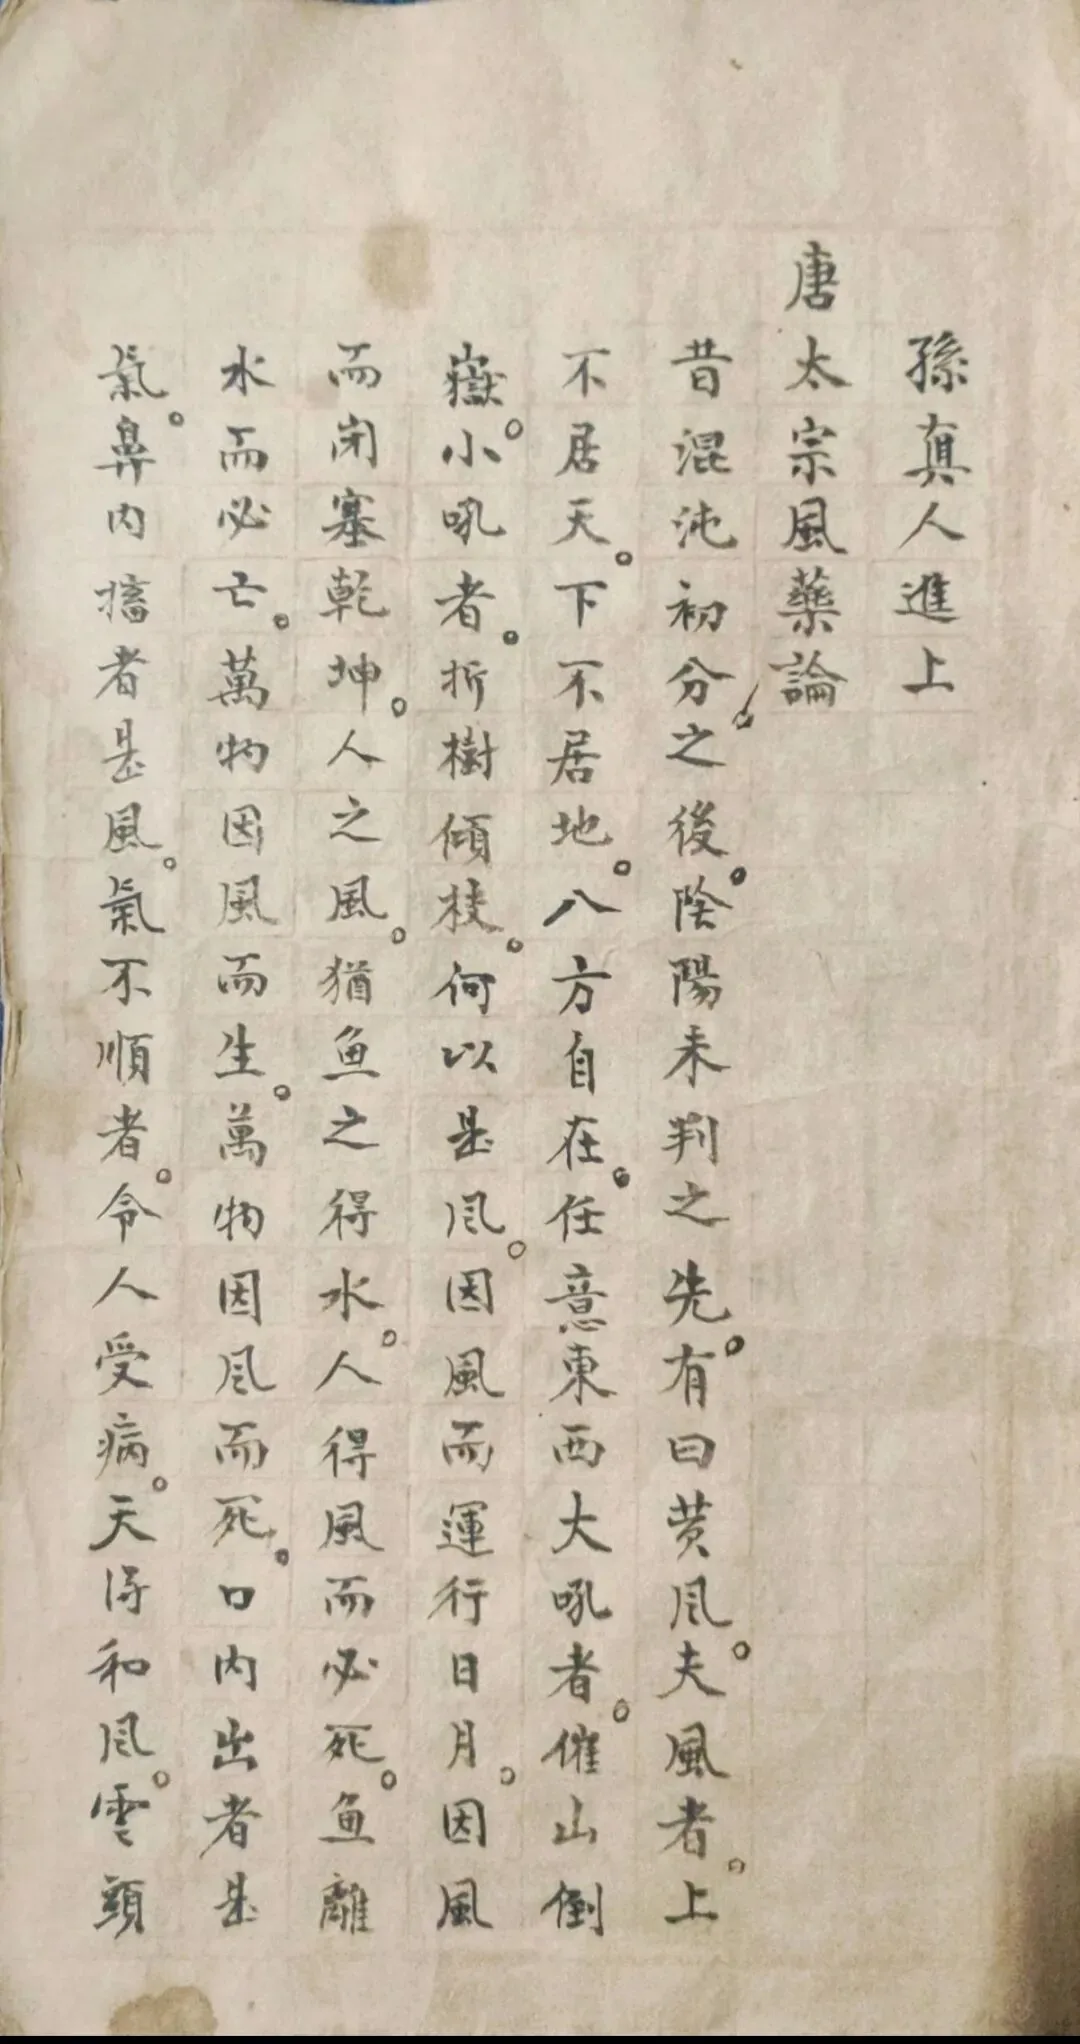 孫真人進上
唐太宗風藥論
昔混沌初分之後。陰陽未判之先。有曰黄凨。夫風者。上
不居天。下不居地。八方自在。任意東西大吼者。催山倒
嶽。小吼者。折樹傾枝。何以是凨。因風而運行日月。因風
而闭塞乾坤。人之風。猶鱼之得水。人得風而必死。鱼離
水而必亡。萬物因風而生。萬物因凨而死。口内出者是
氣。鼻内搐者是風。氣不順者。令人受病。天得和凨。雲頭